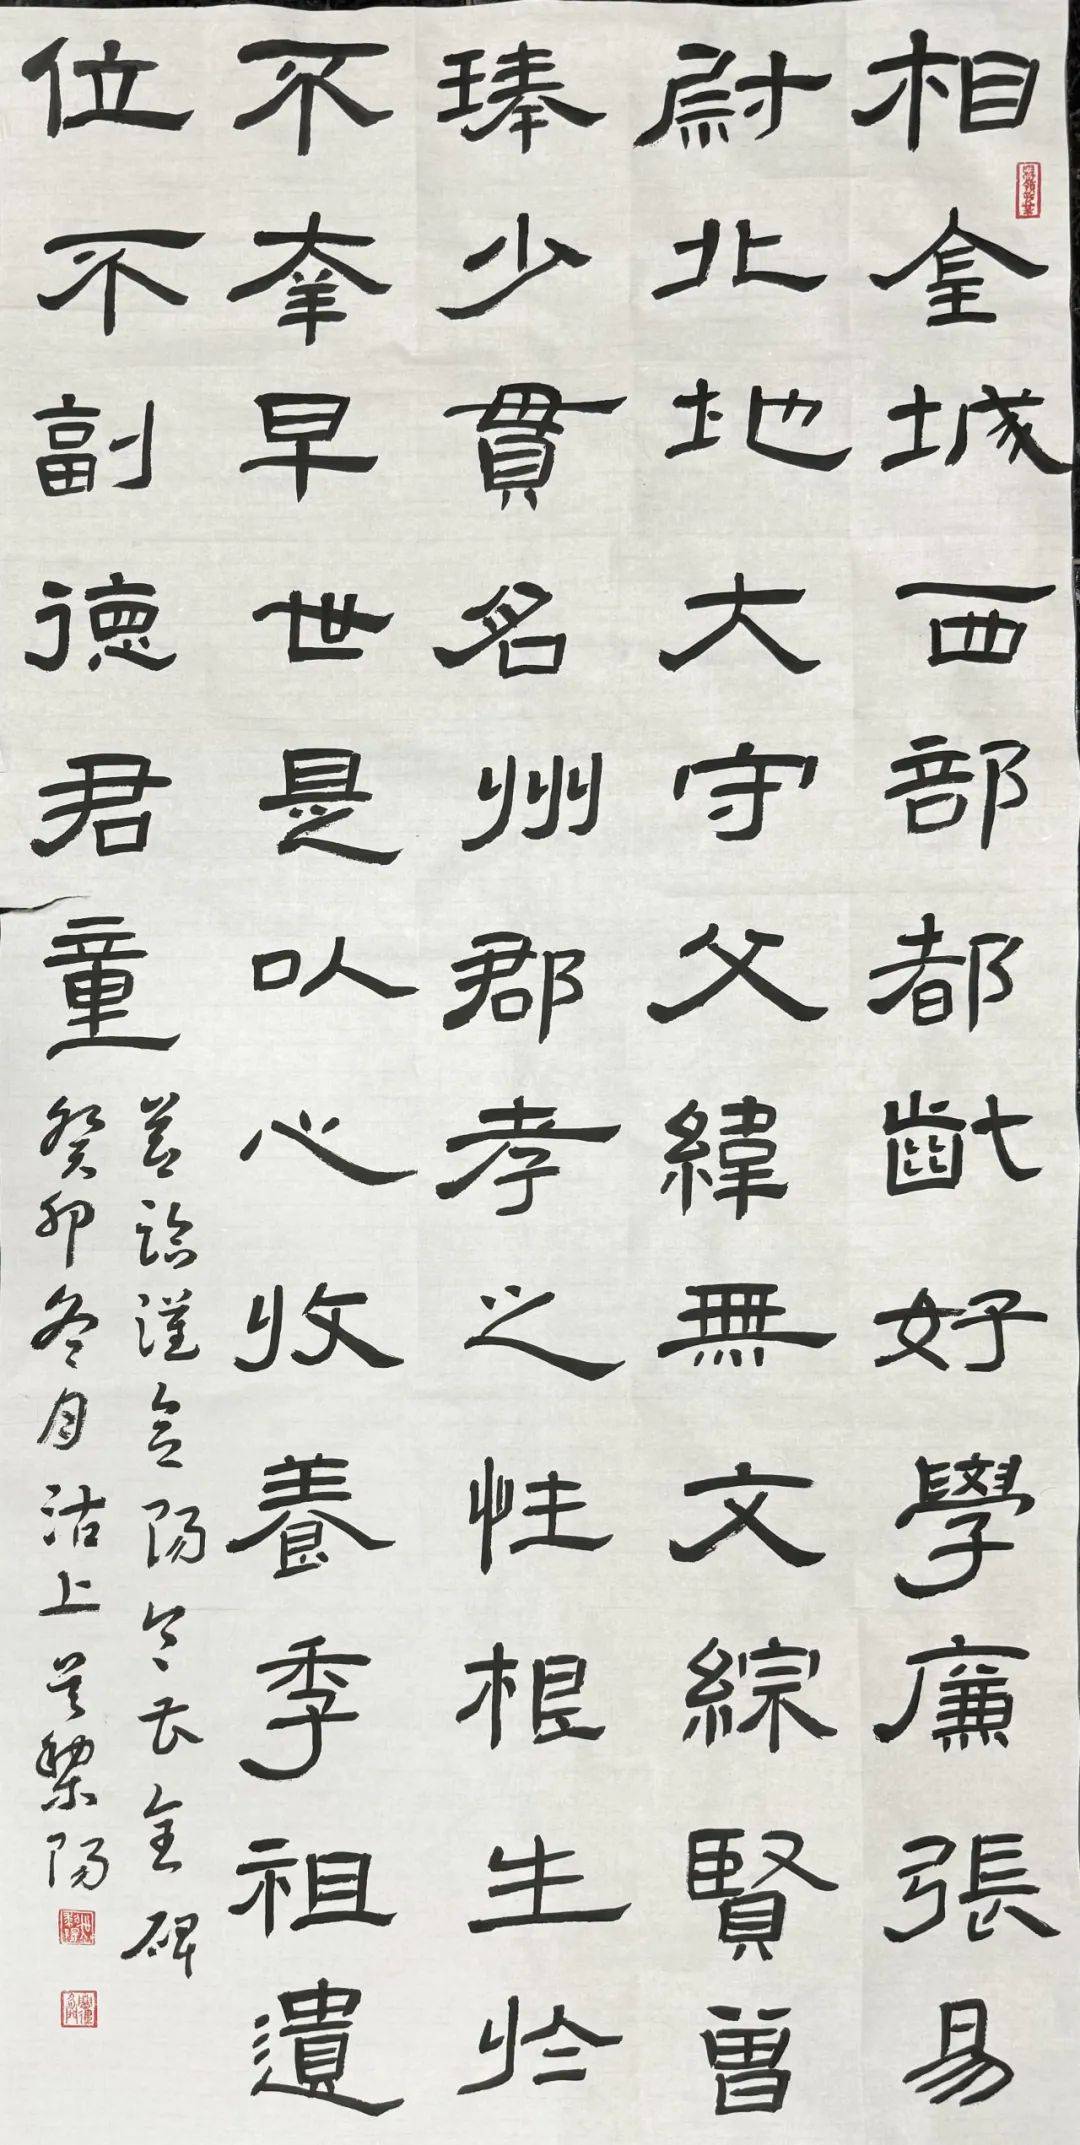 相金城西部都齔好學廉張易
尉北地大守父緯無文綜賢曾
琫少貫名州郡孝之性根生於
不幸早世是以心收養季祖遺
位不副德君童
臨漢合陽令曹全碑
癸卯冬月沽上黎陽